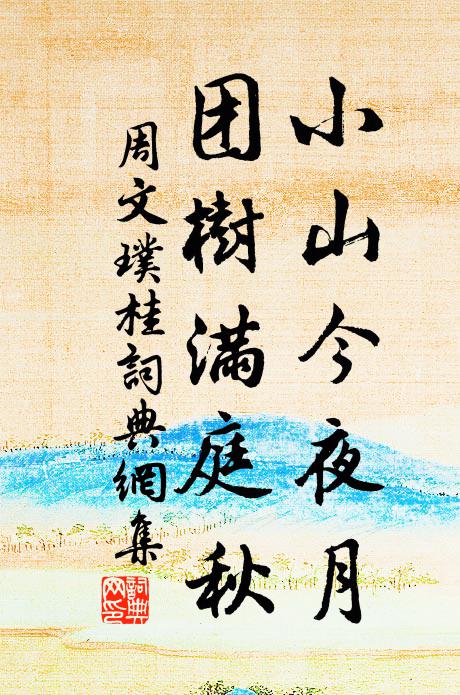 小山今夜月
团樹滿庭秋
周文璞桂詞典網集
詞典网印